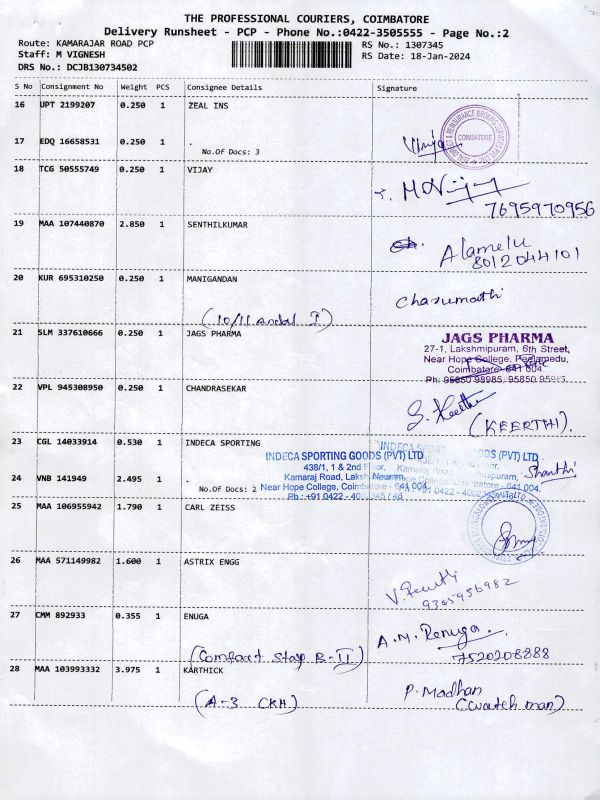 THE PROFESSIONAL COURIERS, COIMBATORE
Delivery Runsheet - PCP - Phone No.:0422-3505555 - Page No.:2
Route: KAMARAJAR ROAD PCP
Staff: M VIGNESH
DRS No.: DCJB130734502
RS No.: 1307345
RS Date: 18-Jan-2024
S No Consignment No Weight PCS Consignee Details Signature
16 UPT 2199207 0.250 1 ZEAL INS
COIMBATORE
17 EDQ 16658531 0.250 1 .
No.Of Docs: 3
18 TCG 50555749 0.250 1 VIJAY
7695970956
19 MAA 107440870 2.850 1 SENTHILKUMAR
Alamelu
8012044101
20 KUR 695310250 0.250 1 MANIGANDAN
Charumathi
21 SLM 337610666 0.250 1 JAGS PHARMA
JAGS PHARMA
27-1, Lakshmipuram, 6th Street,
Near Hope College, Peelamedu,
Coimbatore - 641 004.
Ph: 95850 98985, 95850 95985
22 VPL 945308950 0.250 1 CHANDRASEKAR
S. Keerthi
(KEERTHI).
23 CGL 14033914 0.530 1 INDECA SPORTING
INDECA SPORTING GOODS (PVT) LTD
438/1, 1 & 2nd Floor,
Kamaraj Road, Lakshmipuram,
Near Hope College, Coimbatore - 641 004.
Shanthi
24 VNB 141949 2.495 1 .
No.Of Docs: 2
25 MAA 106955942 1.790 1 CARL ZEISS
26 MAA 571149982 1.600 1 ASTRIX ENGG
9365956982
27 CMM 892933 0.355 1 ENUGA
(Comfort Stay B-II)
A.M. Renuga.
7520208888
28 MAA 103993332 3.975 1 KARTHICK
(A-3 CKH)
P. Madhan
(watch man)